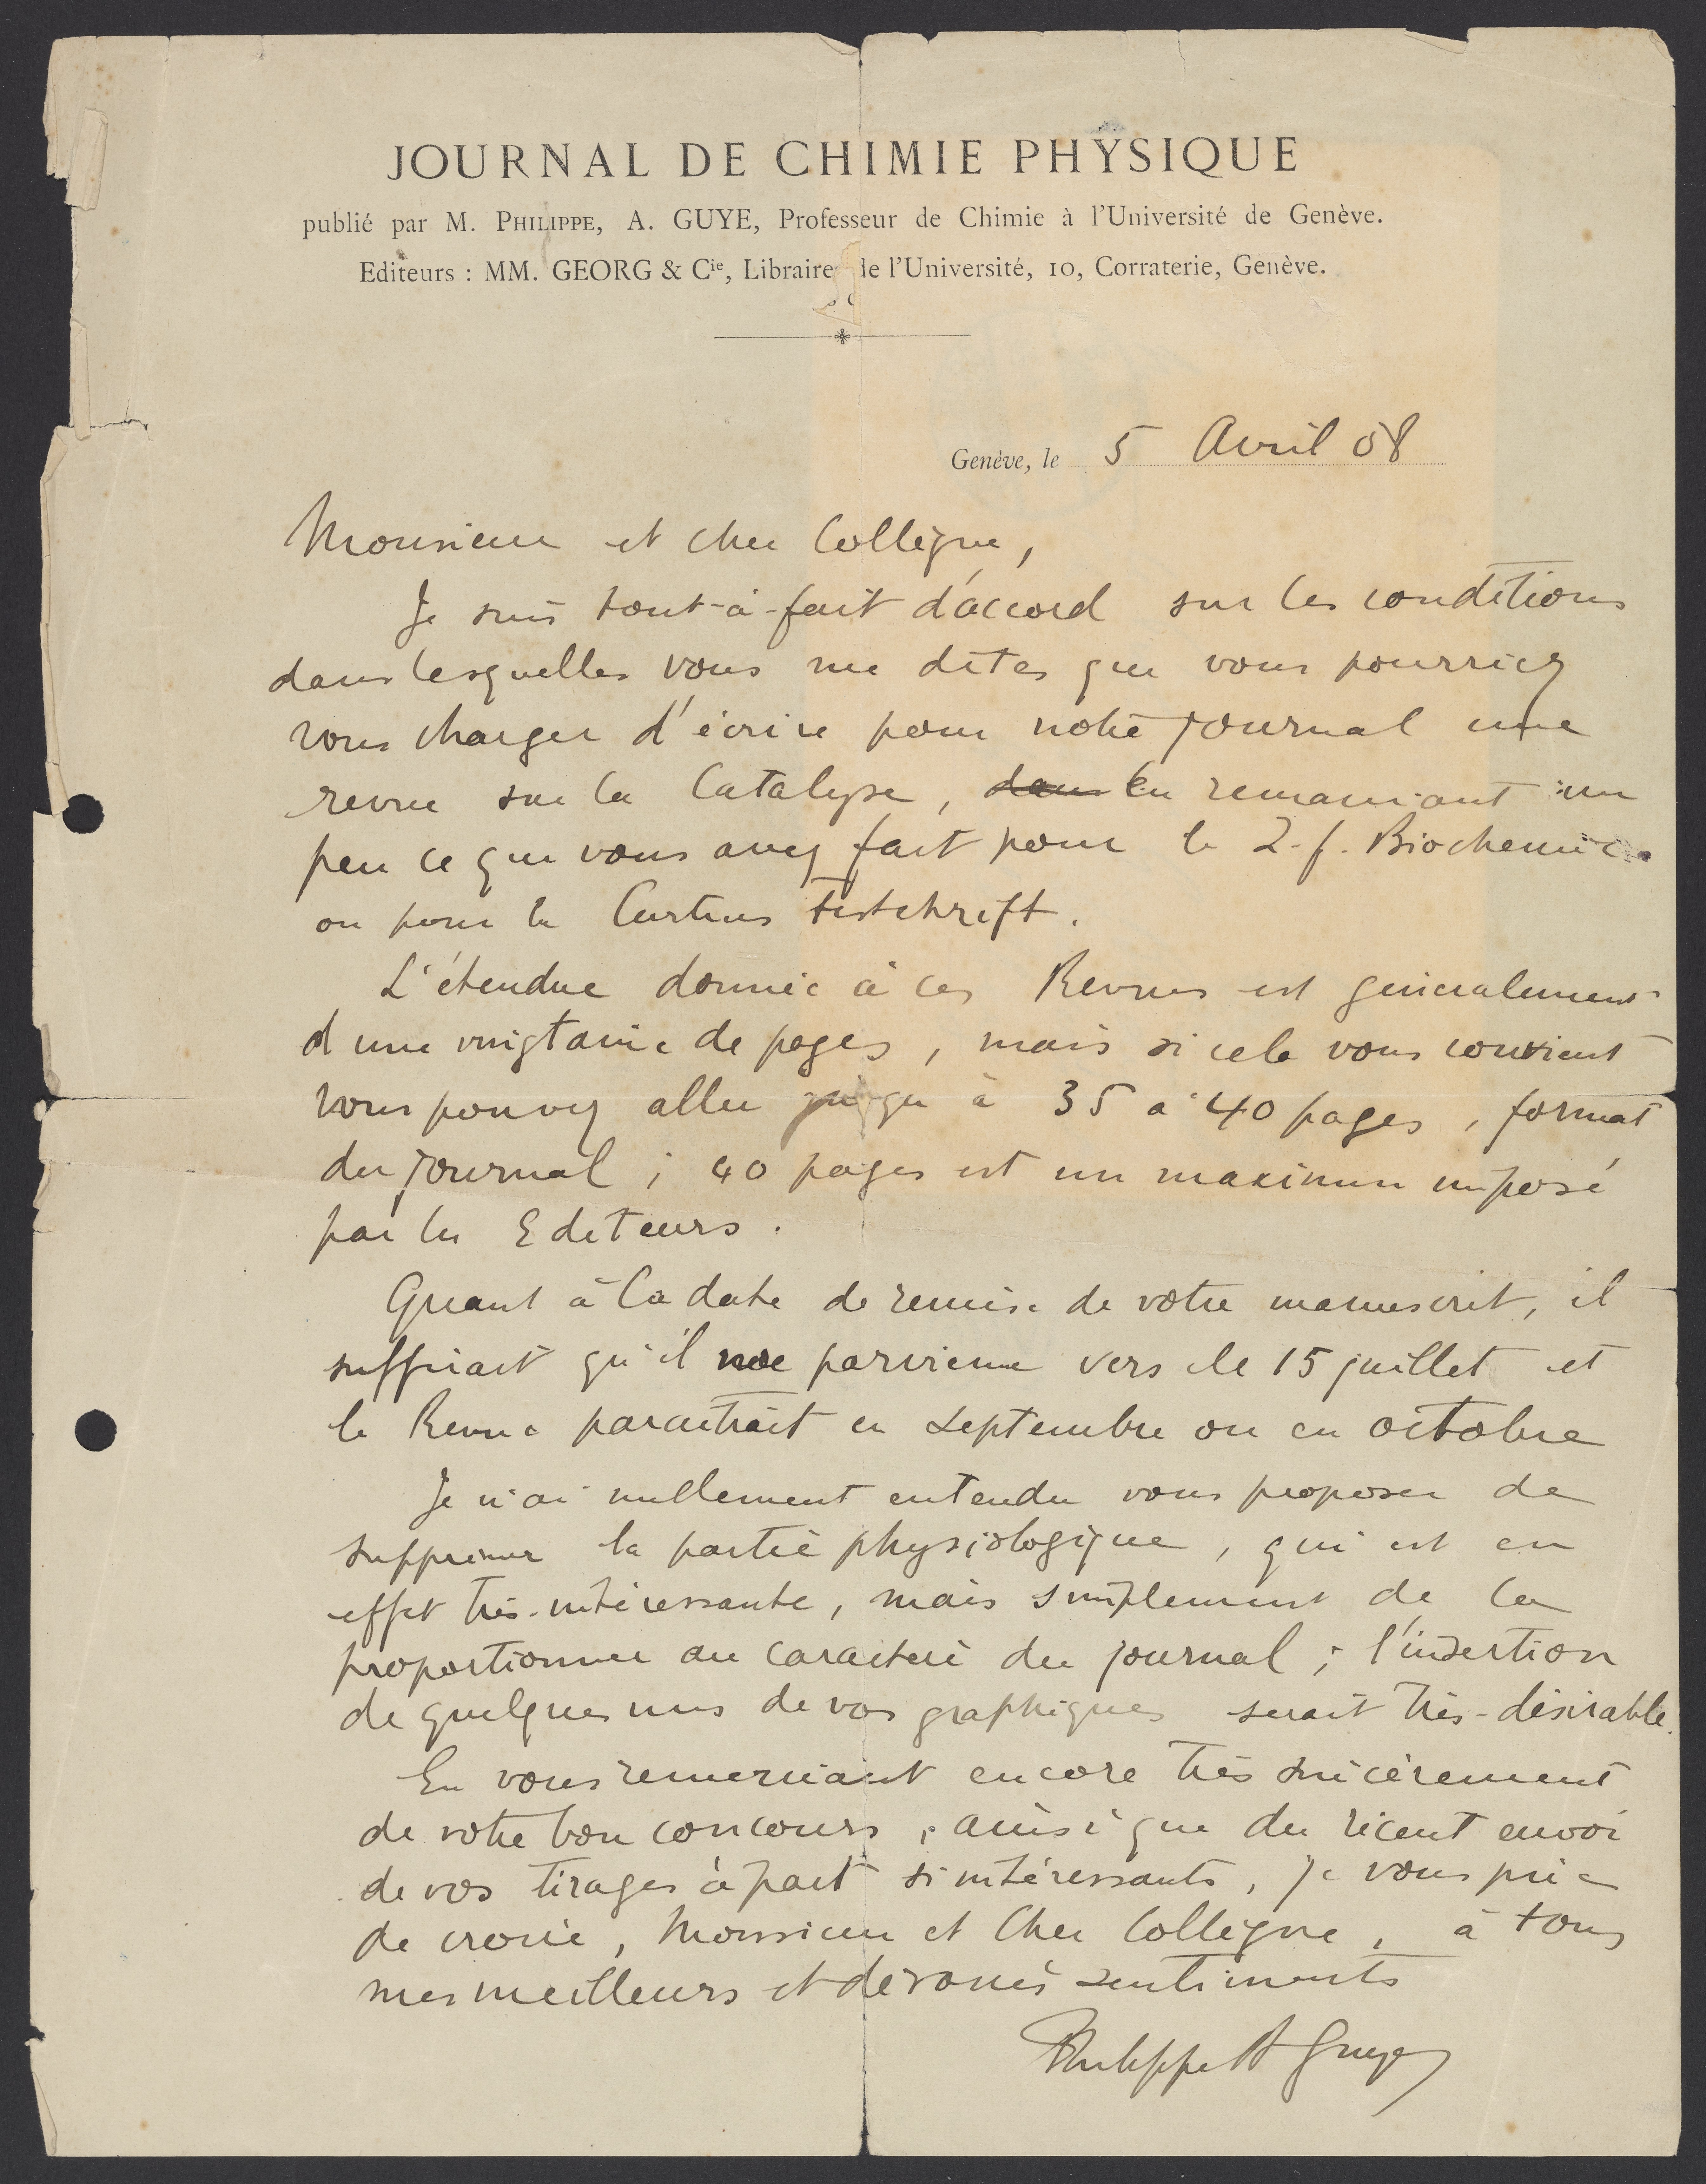 JOURNAL DE CHIMIE PHYSIQUE
publié par M. PHILIPPE, A. GUYE, Professeur de Chimie à l'Université de Genève.
Editeurs : MM. GEORG & Cie, Libraires de l'Université, 10, Corraterie, Genève.
Genève, le 5 Avril 08
Monsieur et cher Collègue,
Je suis tout-à-fait d'accord sur les conditions
dans lesquelles vous me dites que vous pourriez
vous charger d'écrire pour notre journal une
revue sur la Catalyse, dans en remaniant un
peu ce que vous avez fait pour le Z. f. Biochemie
ou pour la Curtius Festschrift.
L'étendue donnée à ces Revues est généralement
d'une vingtaine de pages, mais si cela vous convient
vous pouvez aller jusqu'à 35 à 40 pages, format
du journal ; 40 pages est un maximum imposé
par les Editeurs.
Quant à la date de remise de votre manuscrit, il
suffirait qu'il me parvienne vers le 15 juillet et
la Revue paraitrait en septembre ou en octobre
Je n'ai nullement entendu vous proposer de
supprimer la partie physiologique, qui est en
effet très-intéressante, mais simplement de la
proportionner au caractère du journal ; l'insertion
de quelques uns de vos graphiques serait très-désirable.
En vous remerciant encore très sincèrement
de votre bon concours, ainsi que du récent envoi
de vos tirages à part si intéressants, je vous prie
de croire, Monsieur et Cher Collègue, à tous
mes meilleurs et dévoués sentiments
Philippe A Guye